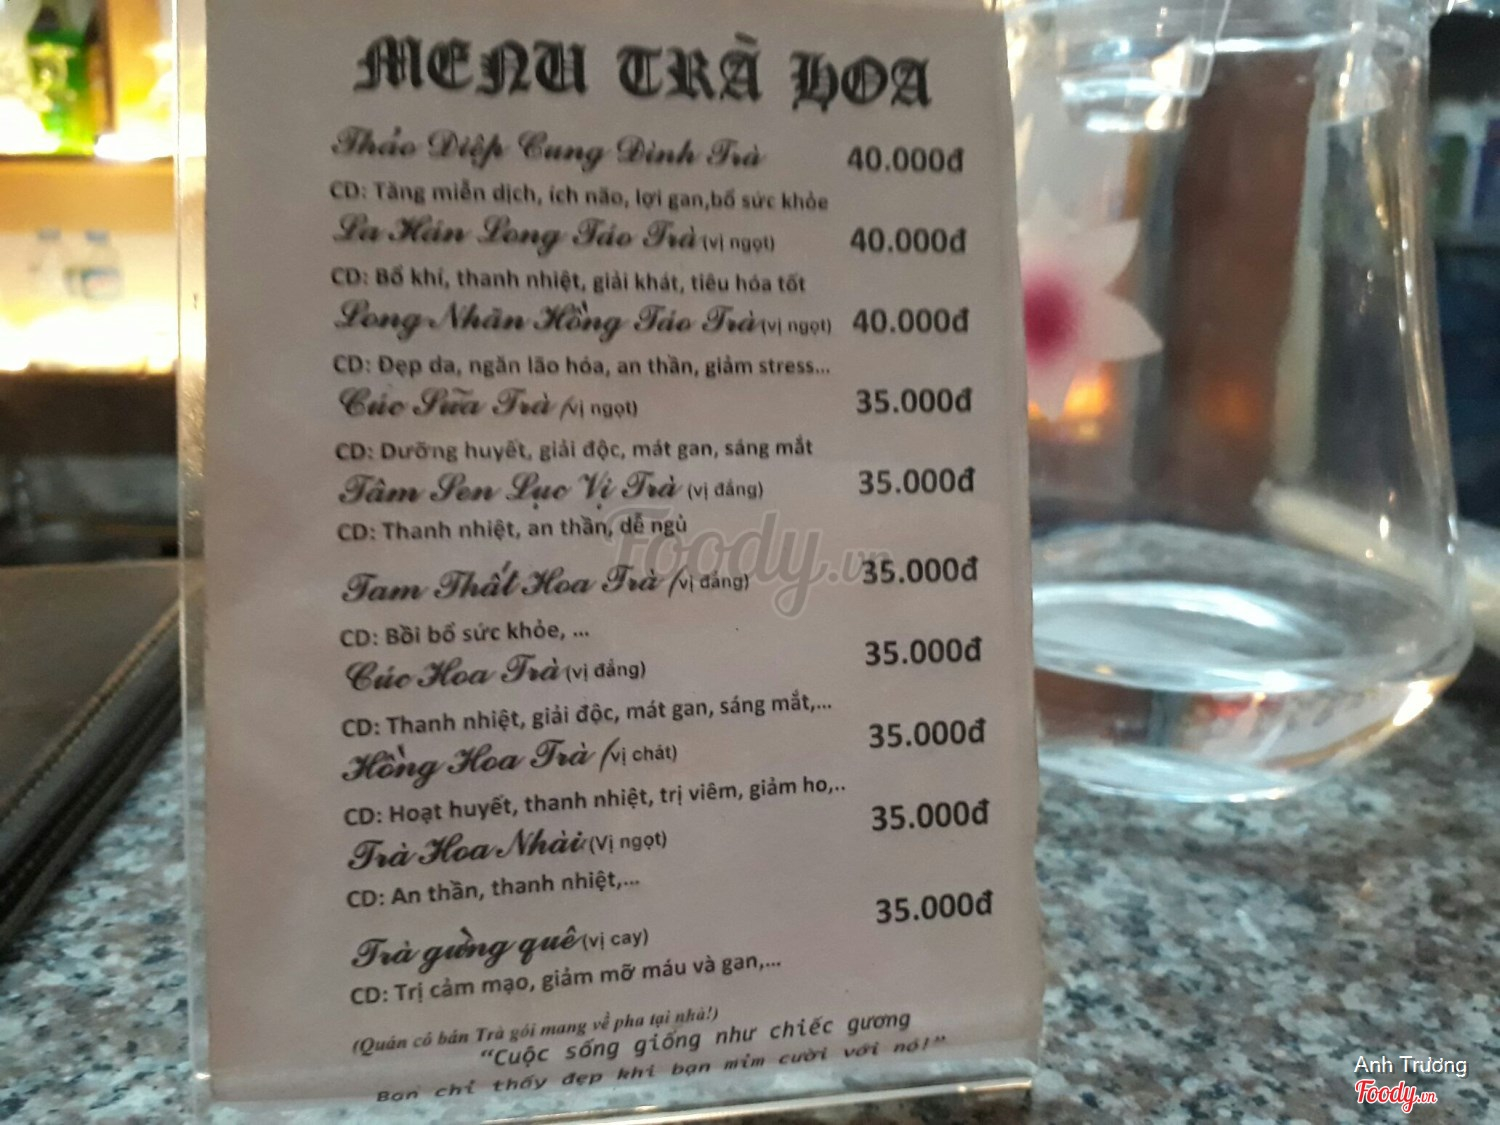 MENU TRÀ HOA
Thảo Diệp Cung Đình Trà 40.000đ
CD: Tăng miễn dịch, ích não, lợi gan,bổ sức khỏe
La Hán Long Táo Trà (vị ngọt) 40.000đ
CD: Bổ khí, thanh nhiệt, giải khát, tiêu hóa tốt
Long Nhãn Hồng Táo Trà (vị ngọt) 40.000đ
CD: Đẹp da, ngăn lão hóa, an thần, giảm stress...
Cúc Sữa Trà (vị ngọt) 35.000đ
CD: Dưỡng huyết, giải độc, mát gan, sáng mắt
Tâm Sen Lục Vị Trà (vị đắng) 35.000đ
CD: Thanh nhiệt, an thần, dễ ngủ
Tam Thất Hoa Trà (vị đắng) 35.000đ
CD: Bồi bổ sức khỏe, ...
Cúc Hoa Trà (vị đắng) 35.000đ
CD: Thanh nhiệt, giải độc, mát gan, sáng mắt,...
Hồng Hoa Trà (vị chát) 35.000đ
CD: Hoạt huyết, thanh nhiệt, trị viêm, giảm ho,..
Trà Hoa Nhài (Vị ngọt) 35.000đ
CD: An thần, thanh nhiệt,...
Trà gừng quế (vị cay) 35.000đ
CD: Trị cảm mạo, giảm mỡ máu và gan,...
(Quán có bán Trà gói mang về pha tại nhà!)
"Cuộc sống giống như chiếc gương
Bạn chỉ thấy đẹp khi bạn mỉm cười với nó!"
Foody.vn
Anh Trương
Foody.vn